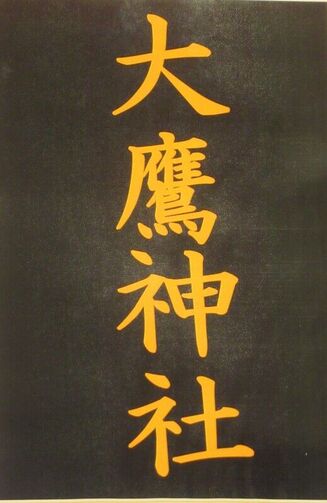 大鷹神社